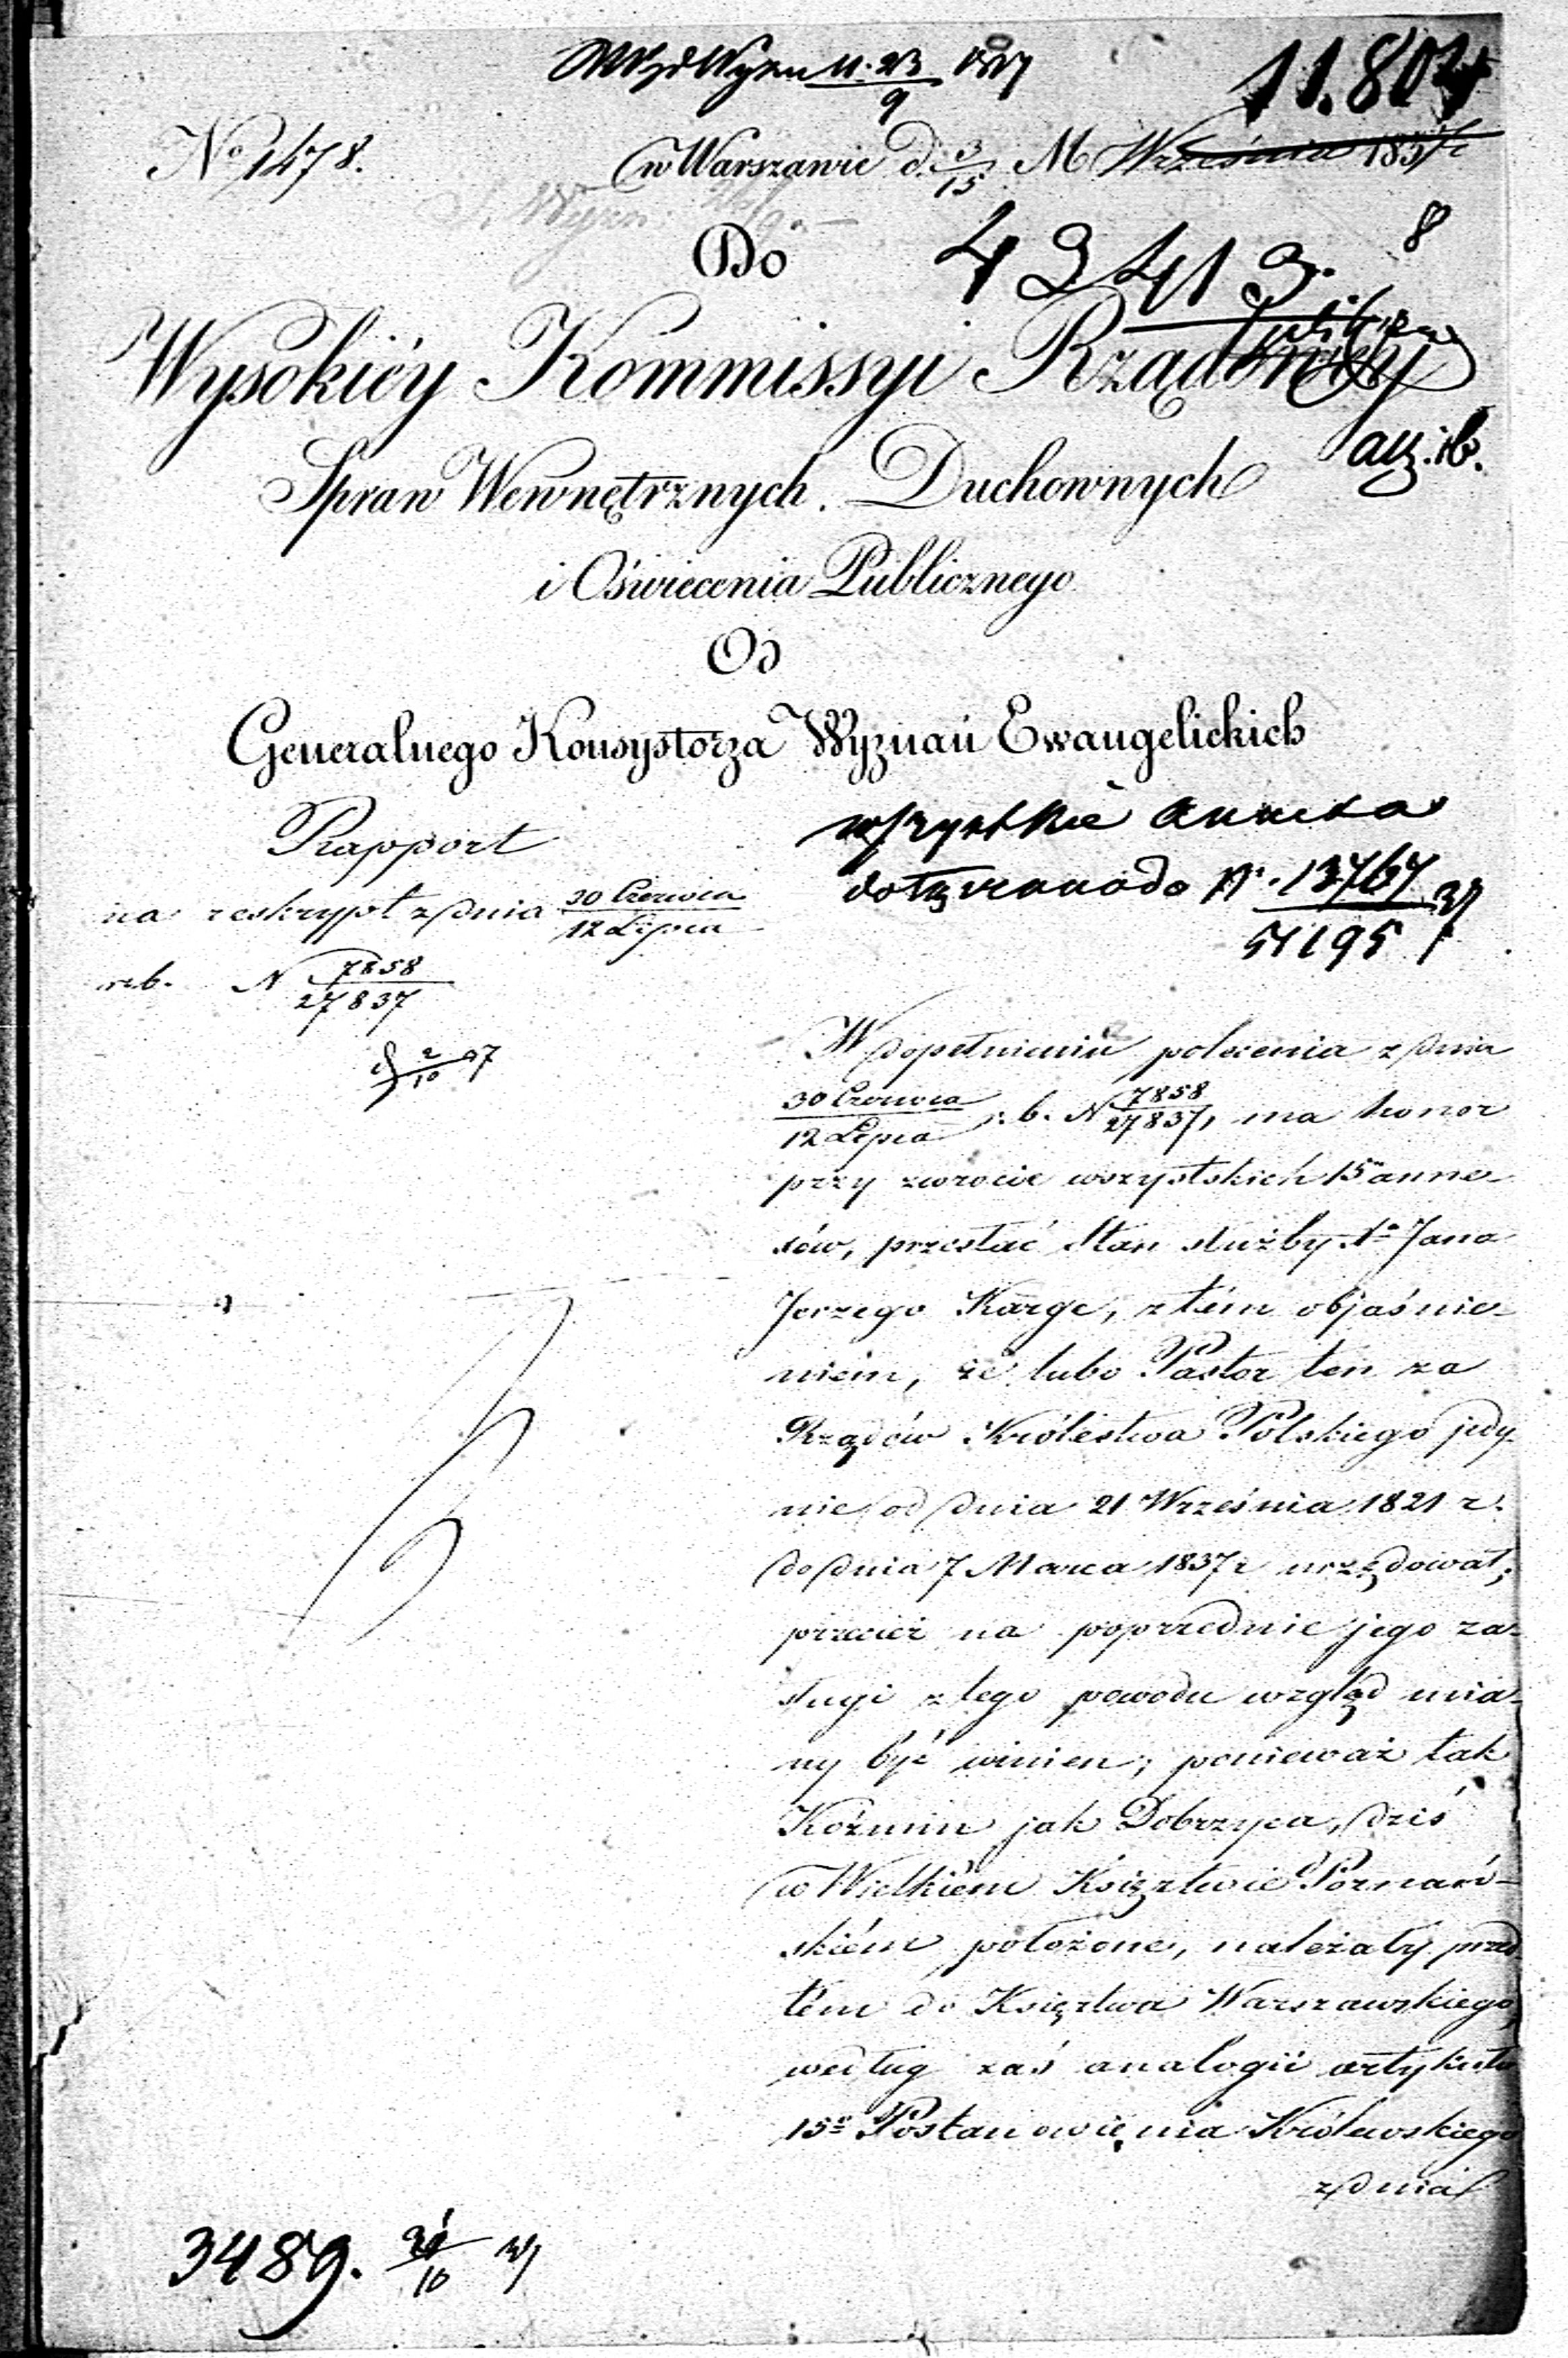 11.804
No 1478.
w Warszawie d. 3/15 M Września 1837 r
8
Do
43413.
Wysokiéy Kommissyi Rządowéy
Spraw Wewnętrznych. Duchownych
i Oświecenia Publicznego
Od
Generalnego Konsystorza Wyznań Ewangelickich
Rapport
na reskrypt z dnia 30 Czerwca/12 Lipca
r. b. N 7858/27837
wszystkie annexa
dołączono do N. 13767/51195 37
2/10 37
W dopełnieniu polecenia z dnia
30 Czerwca/12 Lipca r. b. N 7858/27837, ma honor
przy zwrocie wszystkich 15 anne-
xów, przesłać Stan służby Xa Jana
Jerzego Karge, z tém objaśnie-
niem, że lubo Pastor ten za
Rządów Królestwa Polskiego jedy-
nie od dnia 21 Września 1821 r.
do dnia 7 Marca 1837 r urzędował;
przecież na poprzednie jego za-
sługi z tego powodu wzgląd mia-
ny być winien; ponieważ tak
Koźmin jak Dobrzyca, dziś
w Wielkiém Księztwie Poznań-
skiém położone, należały przed
tém do Księztwa Warszawskiego,
według zaś analogii artykułu
15o Postanowienia Królewskiego
z dnia
3489. 21/10 37